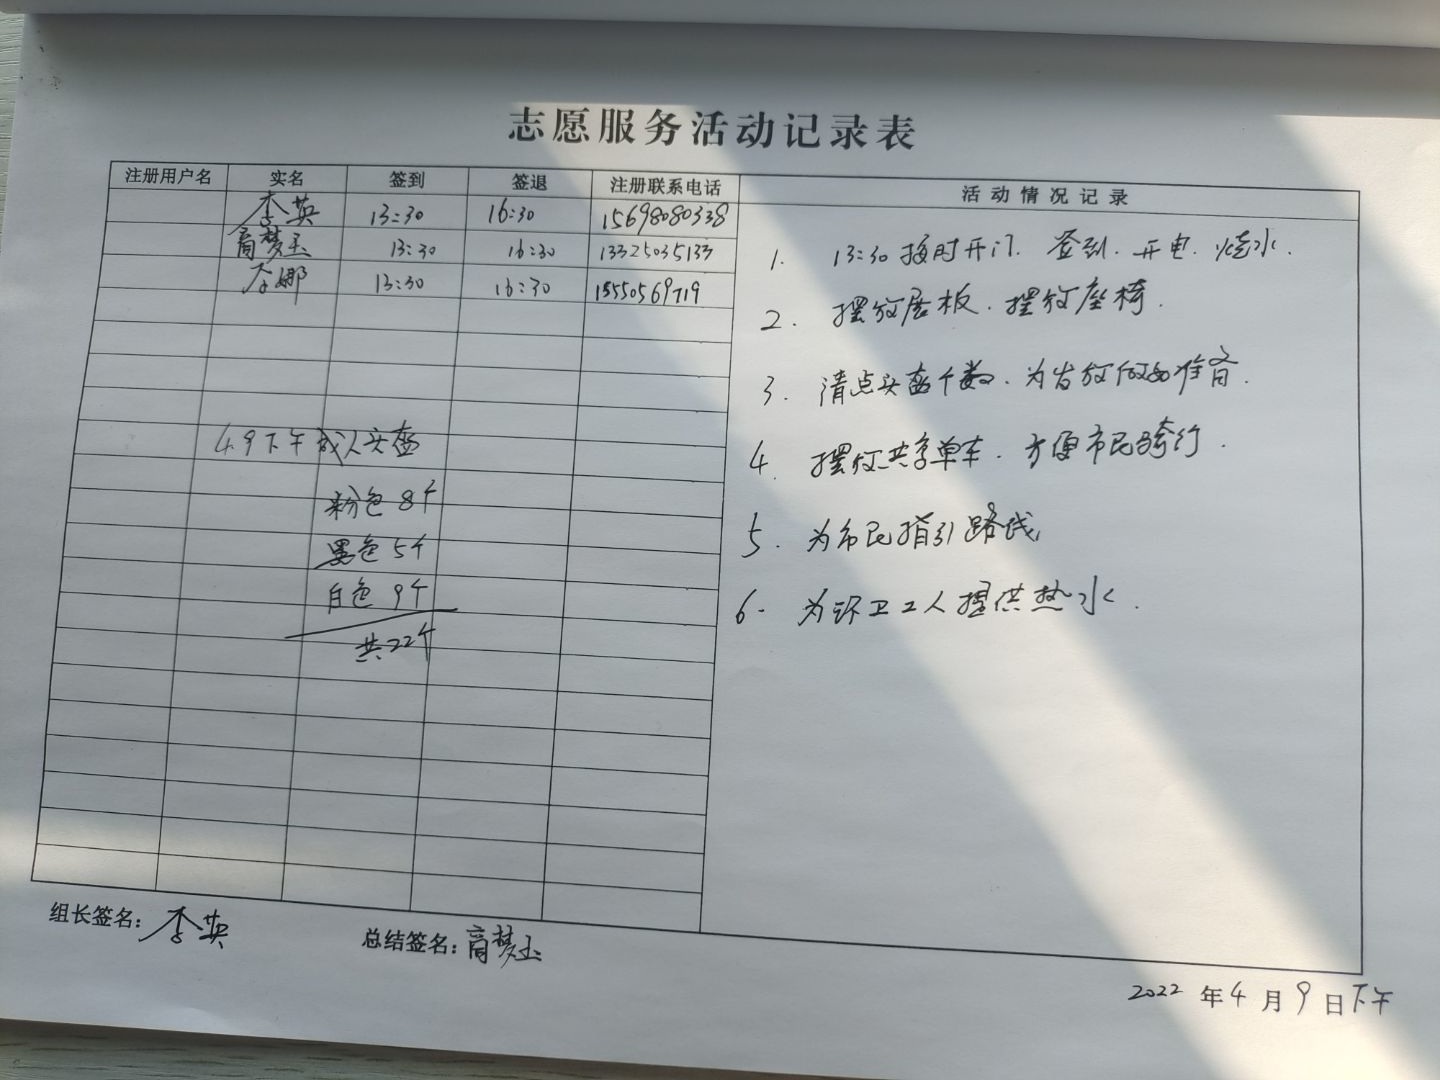 志愿服务活动记录表
注册用户名 实名 签到 签退 注册联系电话 活动情况记录
李英 13:30 16:30 15698080338
商梦玉 13:30 16:30 13325035133
李娜 13:30 16:30 15550569719
4.9下午成人头盔
粉色8个
黑色5个
白色9个
共22个
1. 13:30按时开门、签到、开电、烧水.
2. 摆放展板、摆放座椅.
3. 清点头盔个数、为发放做好准备.
4. 摆放共享单车、方便市民骑行.
5. 为市民指引路线
6. 为环卫工人提供热水.
组长签名：李英 总结签名：商梦玉
2022年4月9日下午